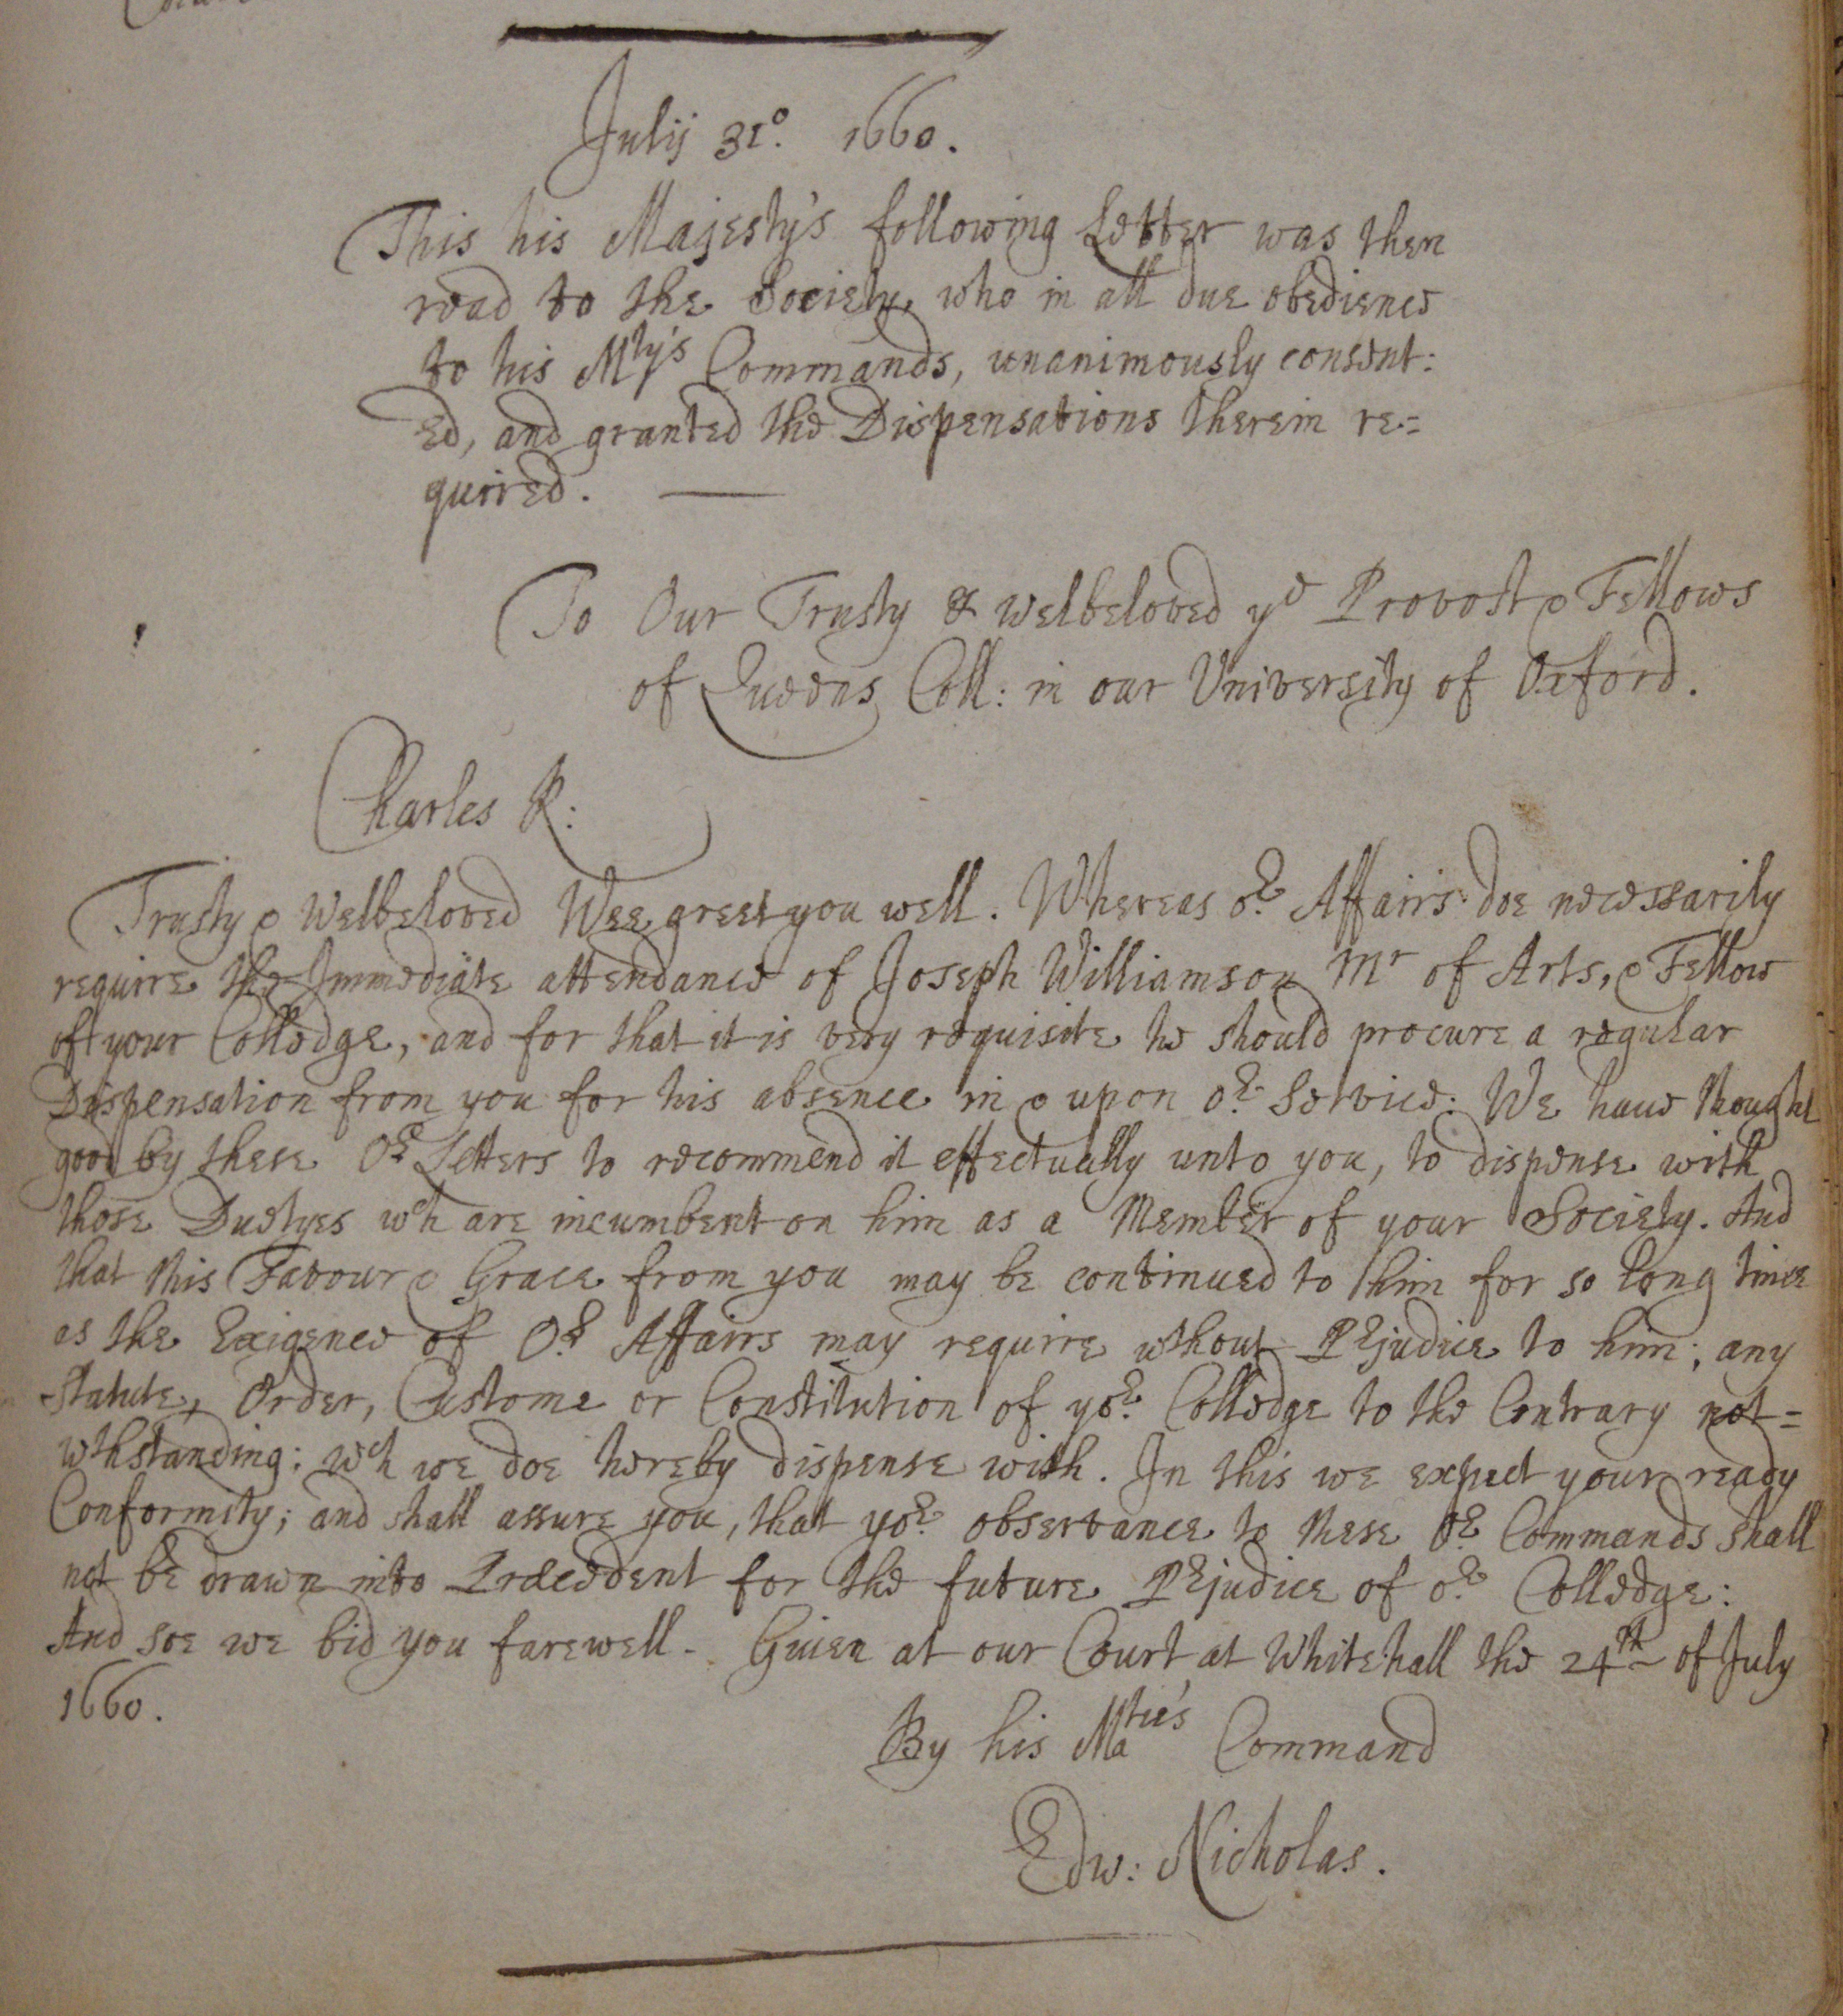 Julij 31º. 1660.
This his Majesty's following Letter was then
read to the Society, who in all due obedience
to his Mty's Commands, unanimously consent:
ed, and granted the Dispensations therein re-=
quired. —
To Our Trusty & welbeloved ye Provost & Fellows
of Queens Coll: in our University of Oxford.
Charles R:
Trusty & Welbeloved Wee greet you well. Whereas or. Affairs doe necessarily
require the Immediate attendance of Joseph Williamson Mr of Arts, & Fellow
of your Colledge, and for that it is very requisite he should procure a regular
Dispensation from you for his absence in & upon or. Service: We have thought
good by these Or. Letters to recommend it effectually unto you, to dispense with
those Duetyes wch are incumbent on him as a Member of your Society. And
that this Favour & Grace from you may be continued to him for so long time
as the Exigence of Or. Affairs may require wthout Prejudice to him; any
Statute, Order, Custome or Constitution of yor. Colledge to the Contrary not=
wthstanding: wch we doe hereby dispense with. In this we expect your ready
Conformity; and shall assure you, that yor. observance to these Or. Commands shall
not be drawn into Præcedent for the future Prejudice of or. Colledge:
And soe we bid you farewell. Given at our Court at Whitehall the 24th of July
1660.
By his Matie's Command
Edw: Nicholas.